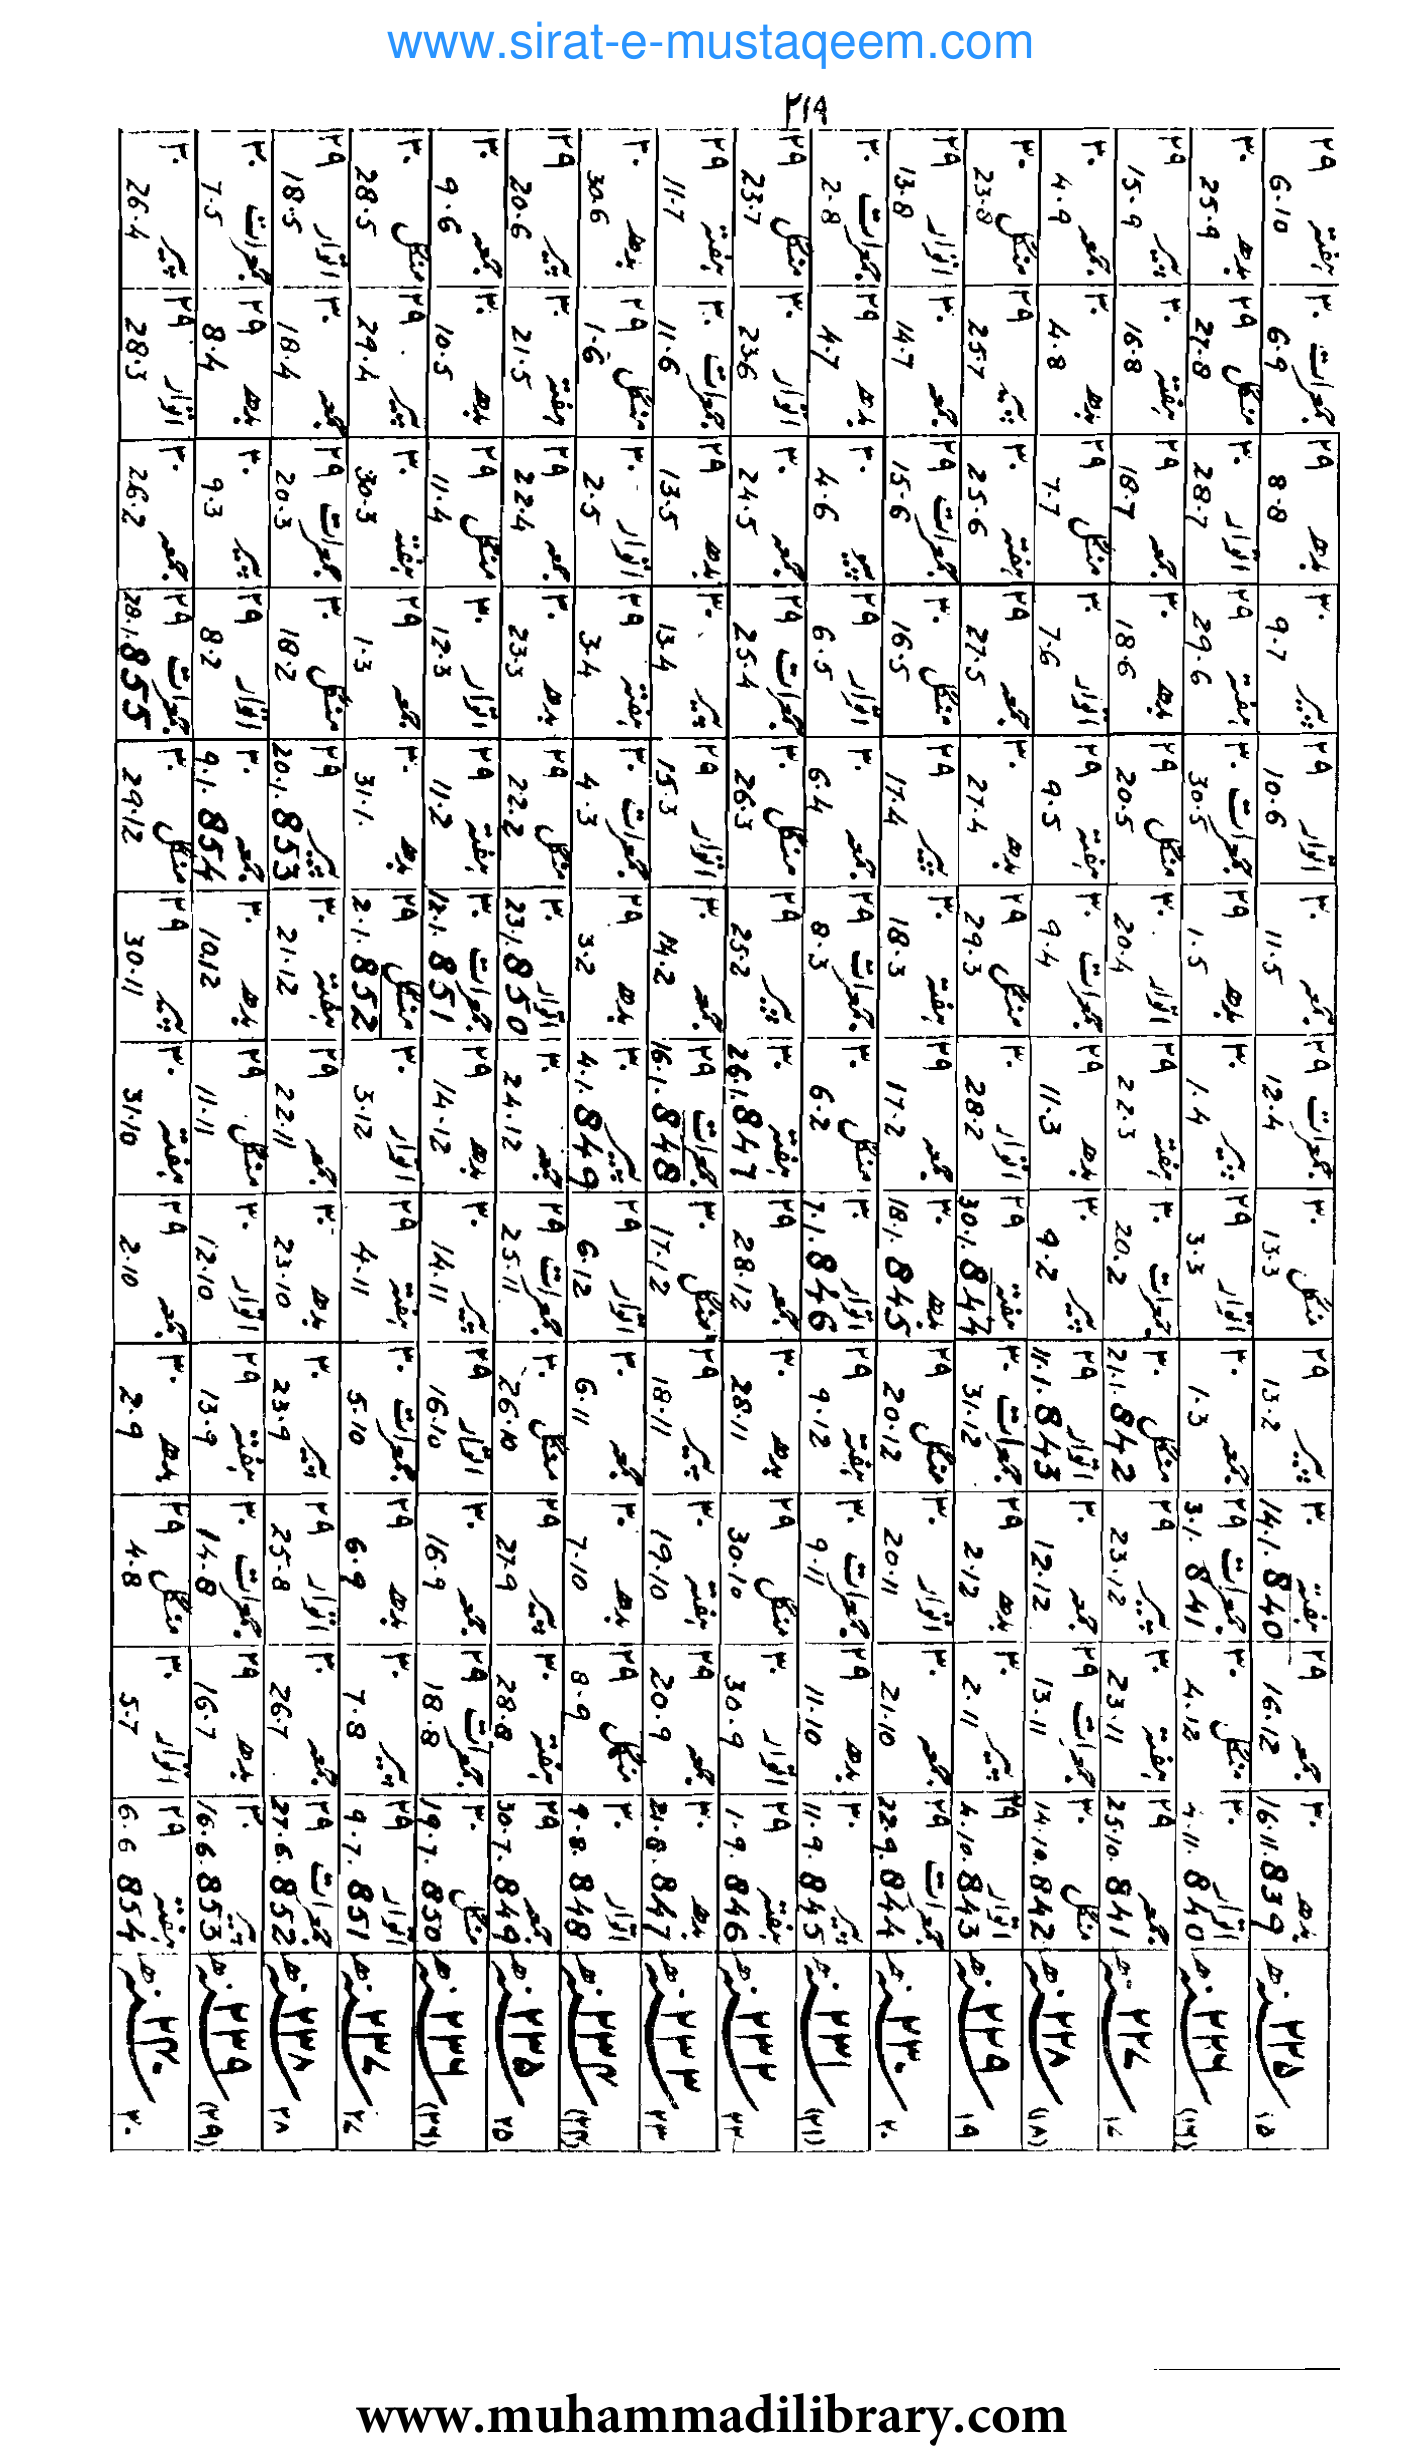 www.sirat-e-mustaqeem.com
۲۱۹
۱۵ ۲۲۵ھ بدھ ۳۰ 16.11.839 جمعہ ۲۹ 16.12 ہفتہ ۳۰ 14.1.840 پیر ۲۹ 13.2 منگل ۳۰ 13.3 جمعرات ۲۹ 12.4 جمعہ ۳۰ 11.5 اتوار ۲۹ 10.6 پیر ۳۰ 9.7 بدھ ۲۹ 8.8 جمعرات ۳۰ 6.9 ہفتہ ۲۹ 6.10
(۱۶) ۲۲۶ھ اتوار ۳۰ 4.11.840 منگل ۳۰ 4.12 جمعرات ۲۹ 3.1.841 جمعہ ۳۰ 1.3 اتوار ۲۹ 3.3 پیر ۳۰ 1.4 بدھ ۲۹ 1.5 جمعرات ۳۰ 30.5 ہفتہ ۲۹ 29.6 اتوار ۳۰ 28.7 منگل ۲۹ 27.8 بدھ ۳۰ 25.9
۱۷ ۲۲۷ھ جمعہ ۲۹ 25.10.841 ہفتہ ۳۰ 23.11 پیر ۲۹ 23.12 منگل ۳۰ 21.1.842 جمعرات ۳۰ 20.2 ہفتہ ۲۹ 22.3 اتوار ۳۰ 20.4 منگل ۲۹ 20.5 بدھ ۳۰ 18.6 جمعہ ۲۹ 18.7 ہفتہ ۳۰ 16.8 پیر ۲۹ 15.9
(۱۸) ۲۲۸ھ منگل ۳۰ 14.10.842 جمعرات ۲۹ 13.11 جمعہ ۳۰ 12.12 اتوار ۲۹ 11.1.843 پیر ۳۰ 9.2 بدھ ۲۹ 11.3 جمعرات ۳۰ 9.4 ہفتہ ۲۹ 9.5 اتوار ۳۰ 7.6 منگل ۲۹ 7.7 بدھ ۳۰ 4.8 جمعہ ۳۰ 4.9
۱۹ ۲۲۹ھ اتوار ۲۹ 4.10.843 پیر ۳۰ 2.11 بدھ ۲۹ 2.12 جمعرات ۳۰ 31.12 ہفتہ ۲۹ 30.1.844 اتوار ۳۰ 28.2 منگل ۲۹ 29.3 بدھ ۳۰ 27.4 جمعہ ۲۹ 27.5 ہفتہ ۳۰ 25.6 پیر ۲۹ 25.7 منگل ۳۰ 23.8
۲۰ ۲۳۰ھ جمعرات ۲۹ 22.9.844 جمعہ ۳۰ 21.10 اتوار ۳۰ 20.11 منگل ۲۹ 20.12 بدھ ۳۰ 18.1.845 جمعہ ۲۹ 17.2 ہفتہ ۳۰ 18.3 پیر ۲۹ 17.4 منگل ۳۰ 16.5 جمعرات ۲۹ 15.6 جمعہ ۳۰ 14.7 اتوار ۲۹ 13.8
(۲۱) ۲۳۱ھ پیر ۳۰ 11.9.845 بدھ ۲۹ 11.10 جمعرات ۳۰ 9.11 ہفتہ ۲۹ 9.12 اتوار ۳۰ 7.1.846 منگل ۳۰ 6.2 جمعرات ۲۹ 8.3 جمعہ ۳۰ 6.4 اتوار ۲۹ 6.5 پیر ۳۰ 4.6 بدھ ۲۹ 4.7 جمعرات ۳۰ 2.8
۲۲ ۲۳۲ھ ہفتہ ۲۹ 1.9.846 اتوار ۳۰ 30.9 منگل ۲۹ 30.10 بدھ ۳۰ 28.11 جمعہ ۲۹ 28.12 ہفتہ ۳۰ 26.1.847 پیر ۲۹ 25.2 منگل ۳۰ 26.3 جمعرات ۲۹ 25.4 جمعہ ۳۰ 24.5 اتوار ۳۰ 23.6 منگل ۲۹ 23.7
۲۳ ۲۳۳ھ بدھ ۳۰ 21.8.847 جمعہ ۲۹ 20.9 ہفتہ ۳۰ 19.10 پیر ۲۹ 18.11 منگل ۳۰ 17.12 جمعرات ۲۹ 16.1.848 جمعہ ۳۰ 14.2 اتوار ۲۹ 15.3 پیر ۳۰ 13.4 بدھ ۲۹ 13.5 جمعرات ۳۰ 11.6 ہفتہ ۲۹ 11.7
(۲۴) ۲۳۴ھ اتوار ۳۰ 9.8.848 منگل ۲۹ 8.9 بدھ ۳۰ 7.10 جمعہ ۳۰ 6.11 اتوار ۲۹ 6.12 پیر ۳۰ 4.1.849 بدھ ۲۹ 3.2 جمعرات ۳۰ 4.3 ہفتہ ۲۹ 3.4 اتوار ۳۰ 2.5 منگل ۲۹ 1.6 بدھ ۳۰ 30.6
۲۵ ۲۳۵ھ جمعہ ۲۹ 30.7.849 ہفتہ ۳۰ 28.8 پیر ۲۹ 27.9 منگل ۳۰ 26.10 جمعرات ۲۹ 25.11 جمعہ ۳۰ 24.12 اتوار ۳۰ 23.1.850 منگل ۲۹ 22.2 بدھ ۳۰ 23.3 جمعہ ۲۹ 22.4 ہفتہ ۳۰ 21.5 پیر ۲۹ 20.6
(۲۶) ۲۳۶ھ منگل ۳۰ 19.7.850 جمعرات ۲۹ 18.8 جمعہ ۳۰ 16.9 اتوار ۲۹ 16.10 پیر ۳۰ 14.11 بدھ ۲۹ 14.12 جمعرات ۳۰ 12.1.851 ہفتہ ۲۹ 11.2 اتوار ۳۰ 12.3 منگل ۲۹ 11.4 بدھ ۳۰ 10.5 جمعہ ۳۰ 9.6
۲۷ ۲۳۷ھ اتوار ۲۹ 9.7.851 پیر ۳۰ 7.8 بدھ ۲۹ 6.9 جمعرات ۳۰ 5.10 ہفتہ ۲۹ 4.11 اتوار ۳۰ 3.12 منگل ۲۹ 2.1.852 بدھ ۳۰ 31.1. جمعہ ۲۹ 1.3 ہفتہ ۳۰ 30.3 پیر ۲۹ 29.4 منگل ۳۰ 28.5
۲۸ ۲۳۸ھ جمعرات ۲۹ 27.6.852 جمعہ ۳۰ 26.7 اتوار ۲۹ 25.8 پیر ۳۰ 23.9 بدھ ۳۰ 23.10 جمعہ ۲۹ 22.11 ہفتہ ۳۰ 21.12 پیر ۲۹ 20.1.853 منگل ۳۰ 18.2 جمعرات ۲۹ 20.3 جمعہ ۳۰ 18.4 اتوار ۲۹ 18.5
(۲۹) ۲۳۹ھ پیر ۳۰ 16.6.853 بدھ ۲۹ 16.7 جمعرات ۳۰ 14.8 ہفتہ ۲۹ 13.9 اتوار ۳۰ 12.10 منگل ۲۹ 11.11 بدھ ۳۰ 10.12 جمعہ ۳۰ 9.1.854 اتوار ۲۹ 8.2 پیر ۳۰ 9.3 بدھ ۲۹ 8.4 جمعرات ۳۰ 7.5
۳۰ ۲۴۰ھ ہفتہ ۲۹ 6.6.854 اتوار ۳۰ 5.7 منگل ۲۹ 4.8 بدھ ۳۰ 2.9 جمعہ ۲۹ 2.10 ہفتہ ۳۰ 31.10 پیر ۲۹ 30.11 منگل ۳۰ 29.12 جمعرات ۲۹ 28.1.855 جمعہ ۳۰ 26.2 اتوار ۲۹ 28.3 پیر ۳۰ 26.4
www.muhammadilibrary.com